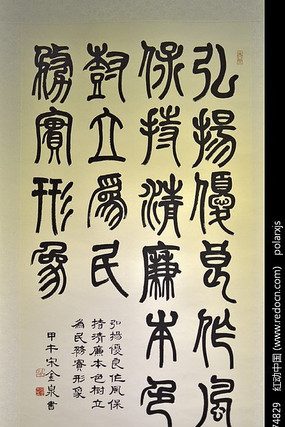 弘揚優良作風
保持清廉本色
樹立為民
務實形象
弘揚優良作風保
持清廉本色樹立
為民務實形象
甲午宋金泉書
红动中国 (www.redocn.com) polarxs